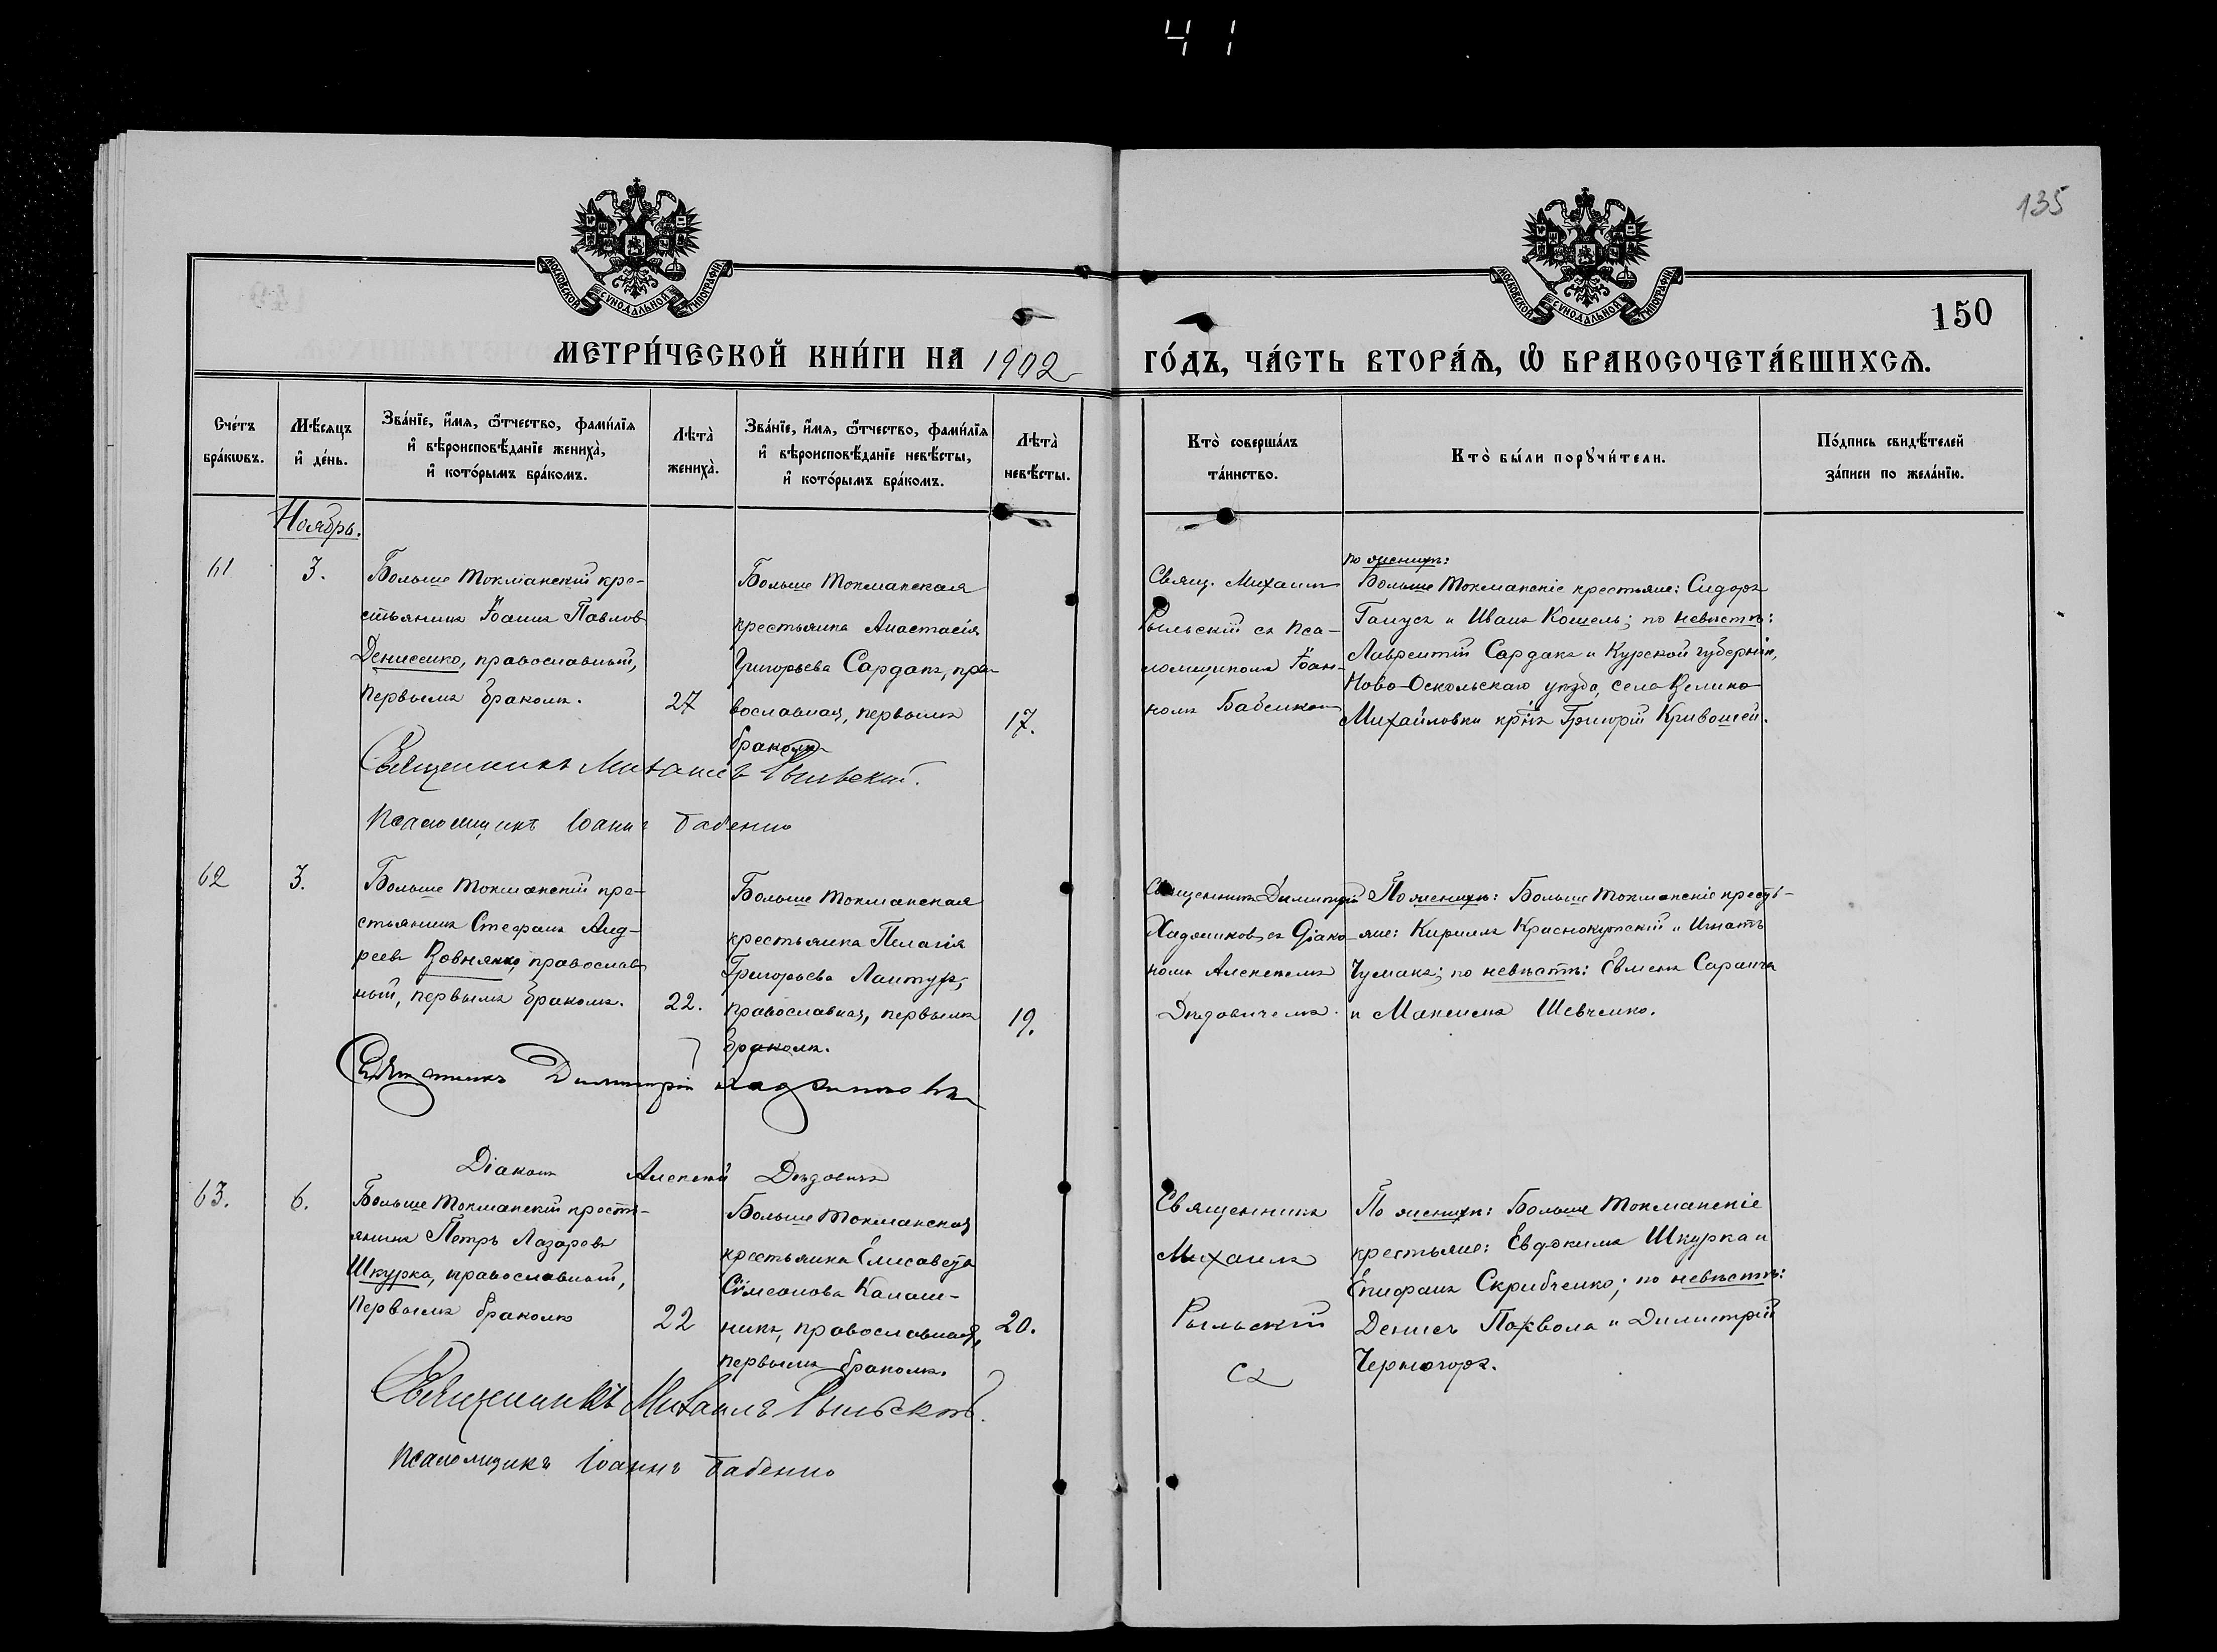 41
135
МОСКОВСКОЙ СУНОДАЛЬНОЙ ТИПОГРАФІИ
МОСКОВСКОЙ СУНОДАЛЬНОЙ ТИПОГРАФІИ
150
МЕТРИ́ЧЕСКОЙ КНИ́ГИ НА 1902 ГО́ДЪ, ЧА́СТЬ ВТОРА́Ѧ, Ѡ҆ БРАКОСОЧЕТА́ВШИХСѦ.
Сче́тъ
бра́кѡвъ.
Мѣ́сѧцъ
и҆ де́нь.
Зва́нїе, и҆́мѧ, ѻ҆́тчество, фами́лїѧ
и҆ вѣроисповѣ́данїе жениха̀,
и҆ кото́рымъ бра́комъ.
Лѣта̀
жениха̀.
Зва́нїе, и҆́мѧ, ѻ҆́тчество, фами́лїѧ
и҆ вѣроисповѣ́данїе невѣ́сты,
и҆ кото́рымъ бра́комъ.
Лѣта̀
невѣ́сты.
Кто̀ соверша́лъ
та́инство.
Кто̀ бы́ли порꙋчи́тели.
По́дпись свидѣ́телей
за́писи по жела́нїю.
Ноябрь.
61
3.
Больше Токмакскій кре-
стьянинъ Іоаннъ Павловъ
Денисенко, православный,
первымъ бракомъ.
27
Больше Токмакская
крестьянка Анастасія
Григорьева Сардакъ, пра-
вославная, первымъ
бракомъ
17.
Свящ. Михаилъ
Рыльскій съ пса-
ломщикомъ Іоан-
номъ Бабенкомъ
по женихѣ:
Больше Токмакскіе крестьяне: Сидоръ
Галуса и Иванъ Кошель; по невѣстѣ:
Лаврентій Сардакъ и Курской губерніи,
Ново-Оскольскаго уѣзда, села Велико-
Михайловки кр-нъ Григорій Кривошей.
Священникъ Михаилъ Рыльскій.
Псаломщикъ Іоаннъ Бабенко
62
3.
Больше Токмакскій кре-
стьянинъ Стефанъ Анд-
реевъ Вовнянко, православ
ный, первымъ бракомъ.
22.
Больше Токмакская
крестьянка Пелагія
Григорьева Лантухъ,
православная, первымъ
бракомъ.
19.
Священникъ Димитрій
Хадзниковъ съ діако-
номъ Алексѣемъ
Дѣдовичемъ.
По женихѣ: Больше Токмакскіе кресть-
яне: Кириллъ Краснокутскій и Игнатъ
Чумакъ; по невѣстѣ: Евменъ Саранча
и Максимъ Шевченко.
Священникъ Димитрій
Діаконъ Алексѣй Дѣдовичъ
63.
6.
Больше Токмакскій кресть-
янинъ Петръ Лазаревъ
Шкурка, православный,
первымъ бракомъ
22
Больше Токмакская
крестьянка Елисавета
Сѵмеонова Калаш-
никъ, православная,
первымъ бракомъ.
20.
Священникъ
Михаилъ
Рыльскій
съ
По женихѣ: Больше Токмакскіе
крестьяне: Евдокимъ Шкурка и
Епифанъ Скрибченко; по невѣстѣ:
Денисъ Похвола и Димитрій
Черногоръ.
Священникъ Михаилъ Рыльскій.
Псаломщикъ Іоаннъ Бабенко